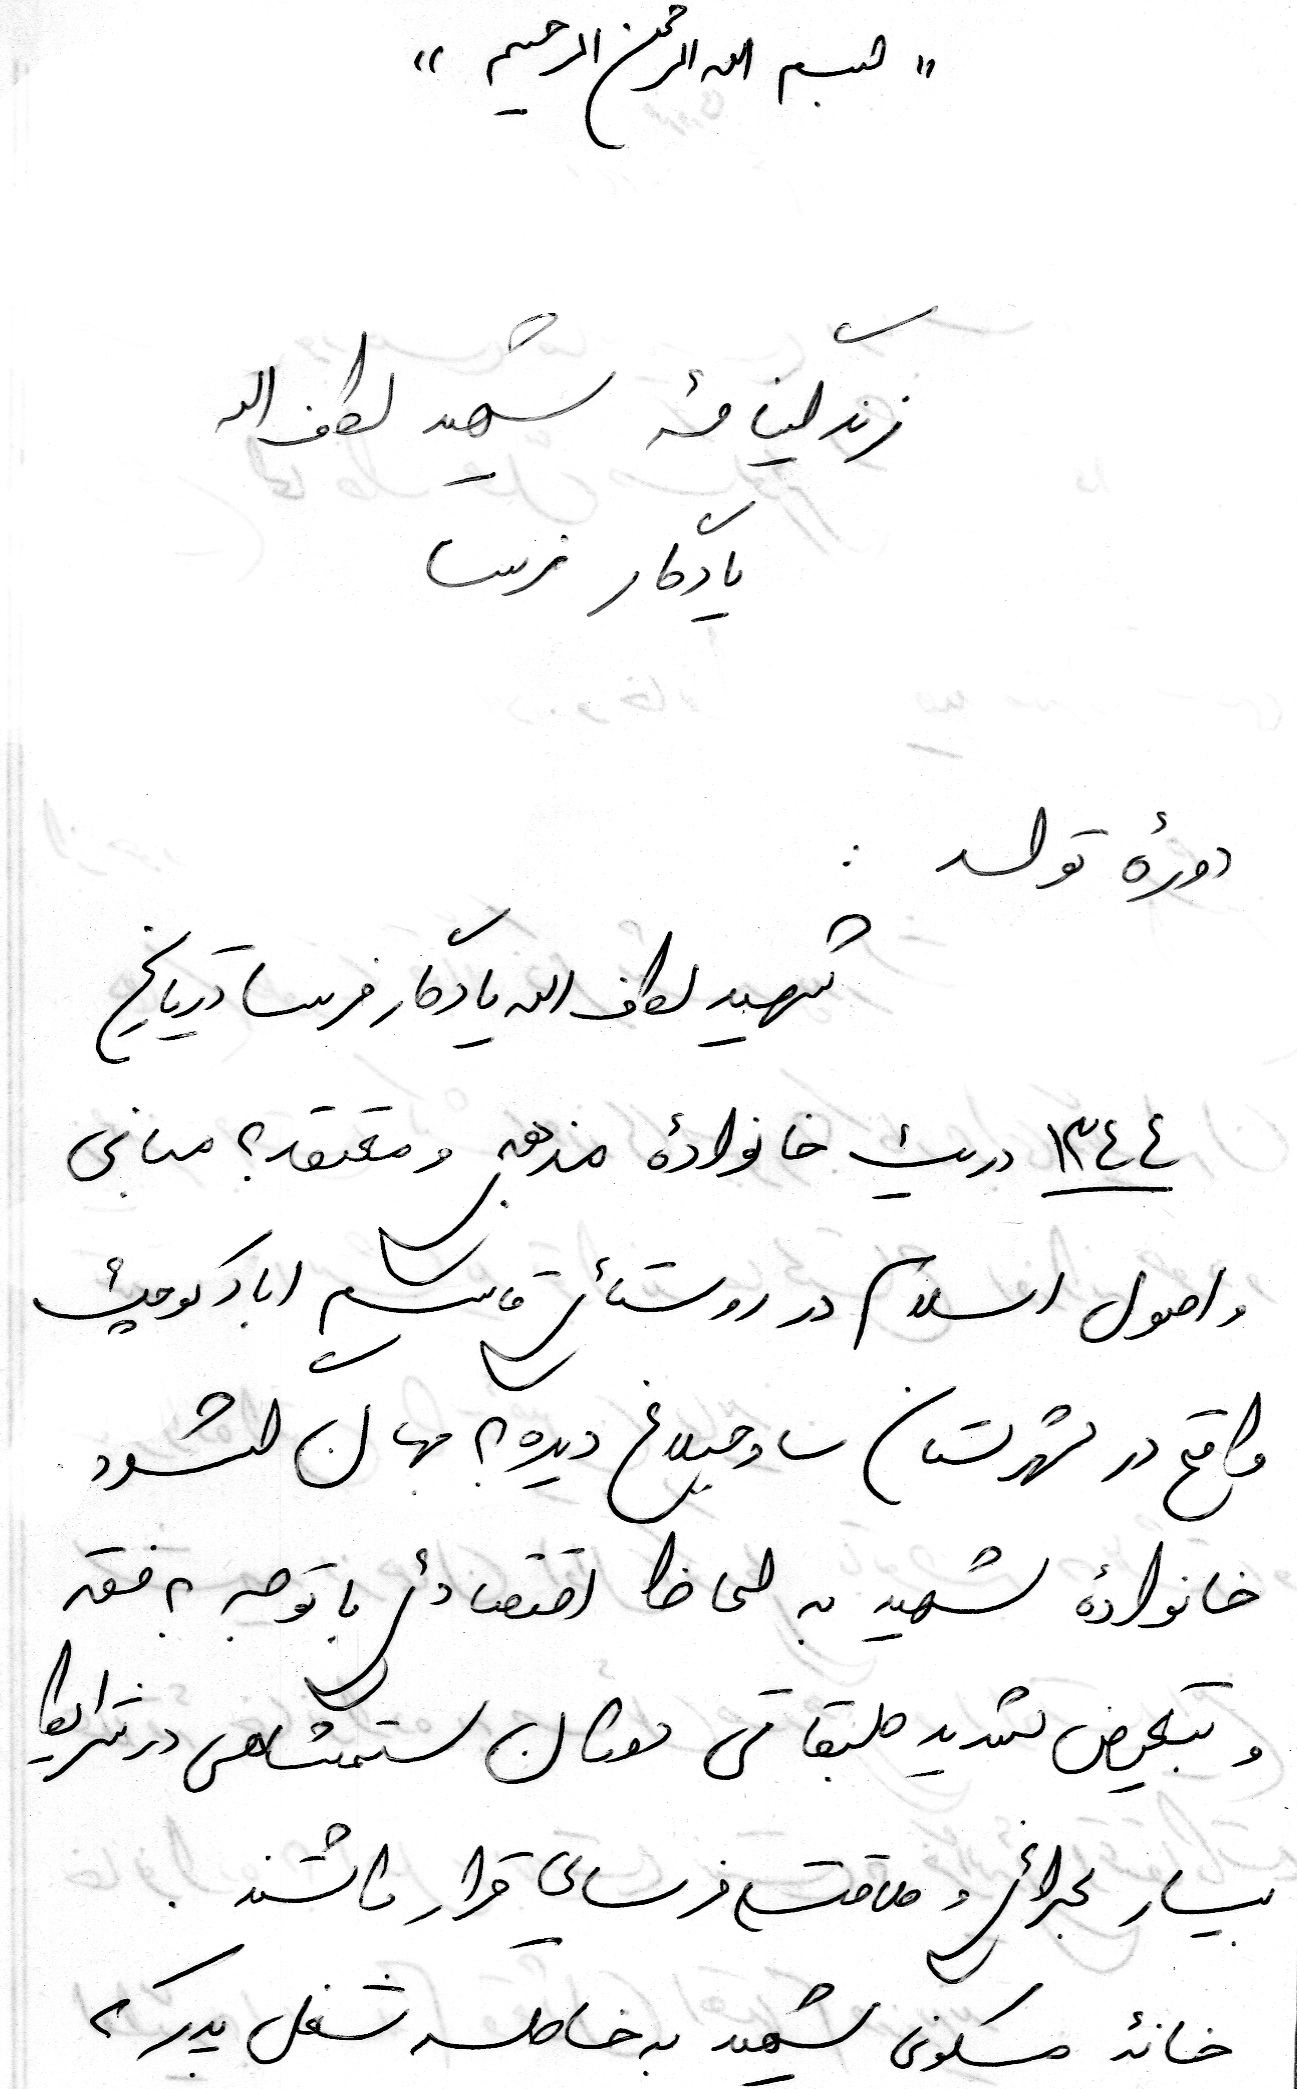 " بسم الله الرحمن الرحیم "
زندگینامهٔ شهید لطف الله
یادگار فرسا
دورهٔ تولد :
شهید لطف الله یادگار فرسا در تاریخ
۱۳٤٤ در یک خانوادهٔ مذهبی و معتقد به مبانی
و اصول اسلام در روستای قاسم اباد کوچک
واقع در شهرستان ساوجبلاغ دیده به جهان گشود
خانوادهٔ شهید به لحاظ اقتصادی با توجه به فقر
و تبعیض شدید طبقاتی دوران ستمشاهی در شرایط
بسیار بحرانی و طاقت فرسایی قرار داشتند .
خانهٔ مسکونی شهید به خاطر شغل پدر که